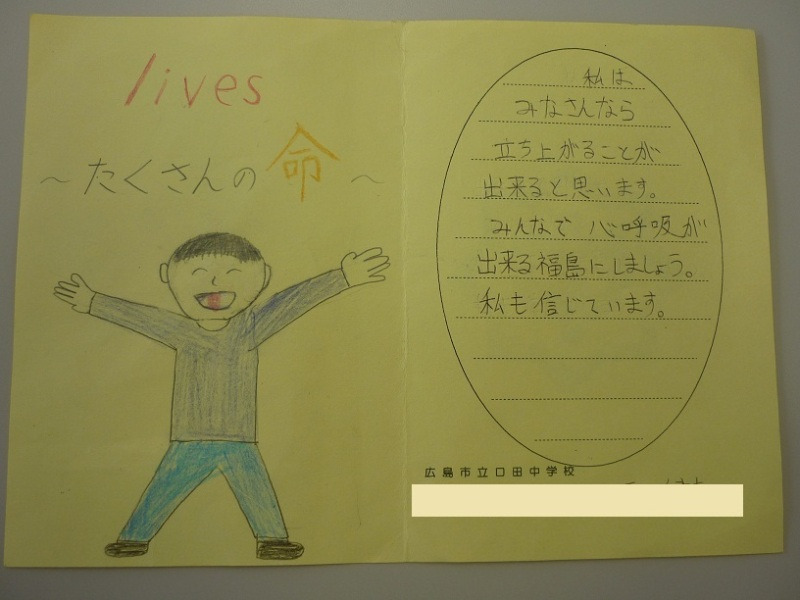 lives
～たくさんの命～
私は
みなさんなら
立ち上がることが
出来ると思います。
みんなで心呼吸が
出来る福島にしましょう。
私も信じています。
広島市立口田中学校